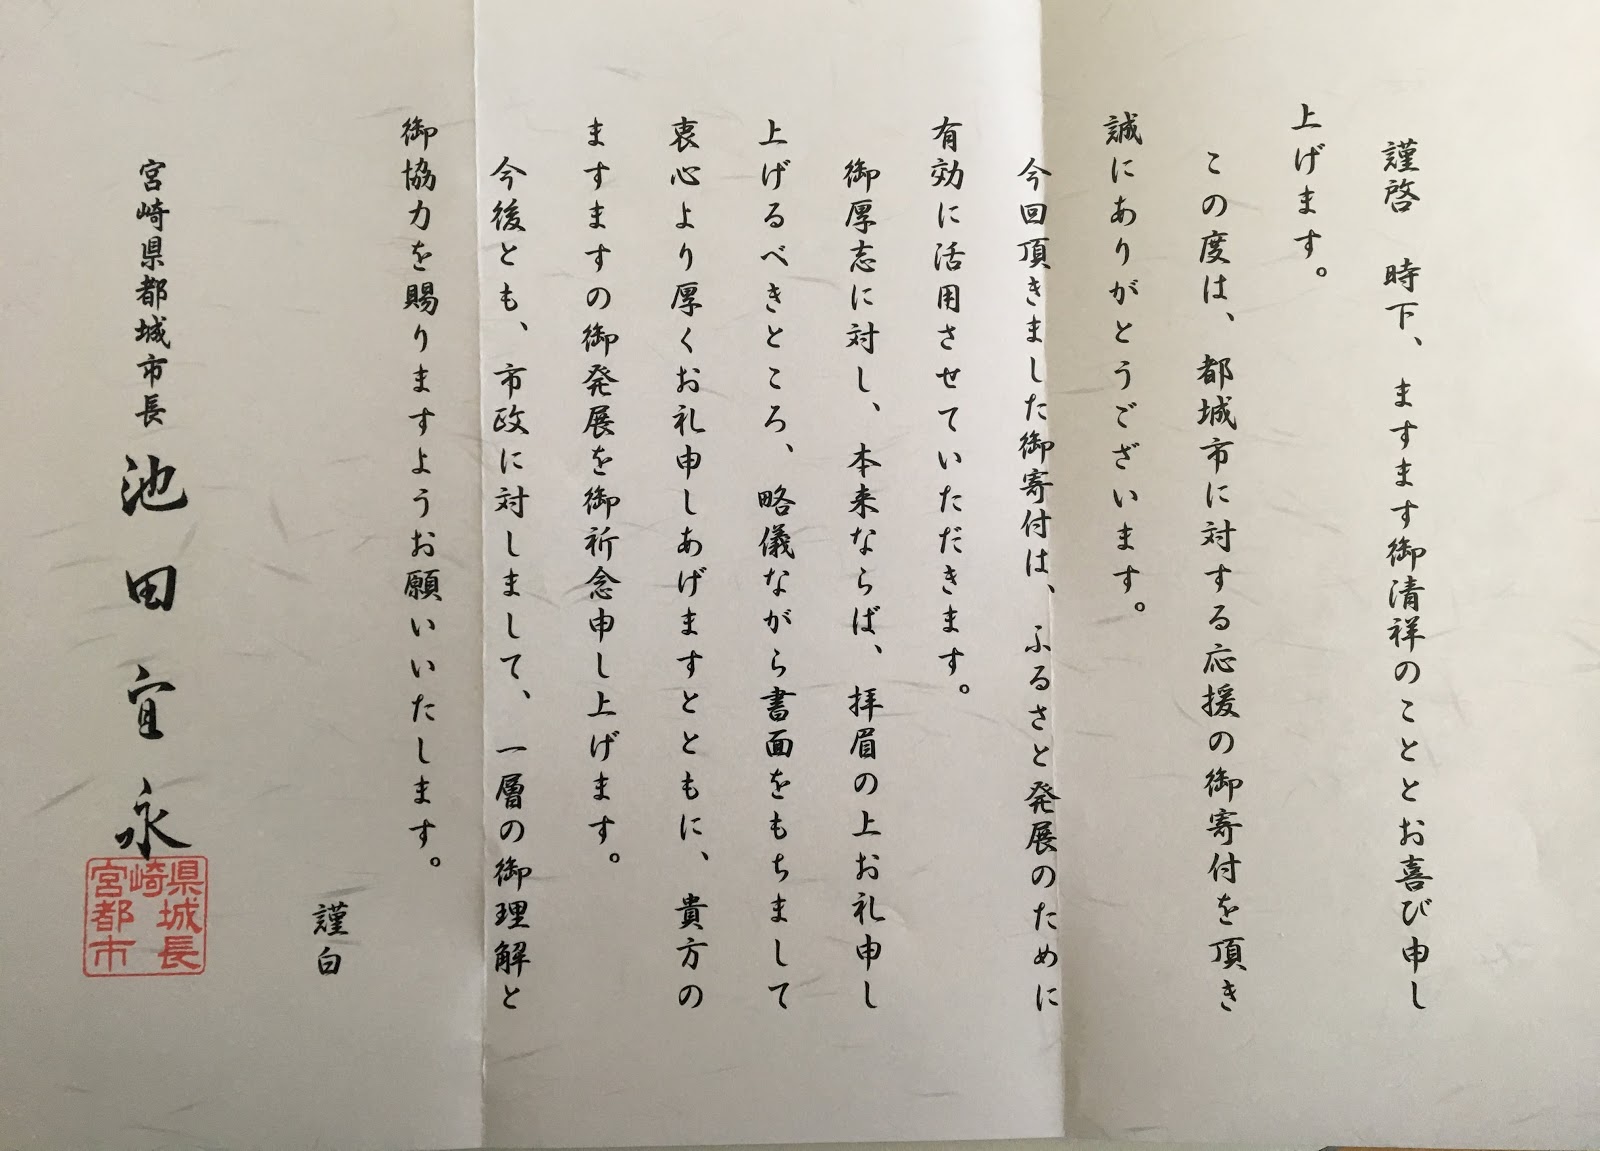 謹啓　時下、ますます御清祥のこととお喜び申し
上げます。
この度は、都城市に対する応援の御寄付を頂き
誠にありがとうございます。
今回頂きました御寄付は、ふるさと発展のために
有効に活用させていただきます。
御厚志に対し、本来ならば、拝眉の上お礼申し
上げるべきところ、略儀ながら書面をもちまして
衷心より厚くお礼申しあげますとともに、貴方の
ますますの御発展を御祈念申し上げます。
今後とも、市政に対しまして、一層の御理解と
御協力を賜りますようお願いいたします。
謹白
宮崎県都城市長　池田宜永
宮崎県
都城
市長